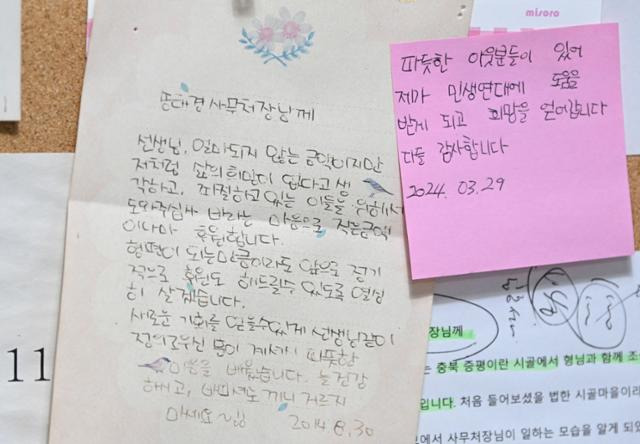 misoro
따뜻한 이웃분들이 있어
저마 민생연대에 도움을
받게 되고 희망을 얻어갑니다
다들 감사합니다
2024. 03. 29
사무처장님께
선생님, 얼마되지 않는 금액이지만
저처럼 삶의희망이 없다고 생
각하고, 좌절하고있는 이들을 위해서
도와주십사 바라는 마음으로 적은금액
이나마 후원합니다.
형편이 되는만큼이라도 앞으로 정기
적으로 후원도 해드릴수 있도록 열심
히 살겠습니다.
새로운 기회를 얻을수있게 선생님같이
정의로우신 분이 계셔서 따뜻한
마음을 배웠습니다. 늘건강
하시고, 바쁘셔도 끼니 거르지
마세요~
2014 8.30
11
장님께
는 충북 증평이란 시골에서 형님과 함께 조
입니다. 처음 들어보셨을 법한 시골마을이라
에서 사무처장님이 일하는 모습을 알게 되었